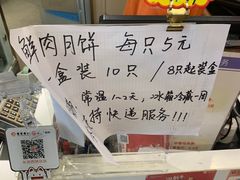 鲜肉月饼 每只5元
盒装10只/8只起装盒
常温1~2天，冰箱冷藏一周
持快递服务!!!